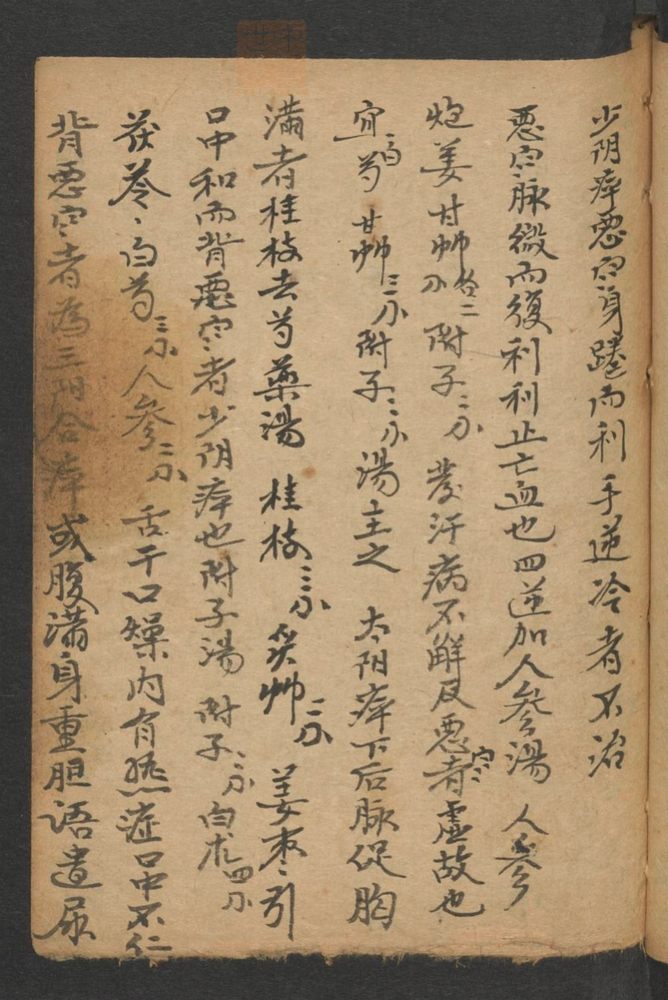 少阴病恶寒身踡而利手逆冷者不治
恶寒脉微而復利利止亡血也四逆加人参湯 人参
炮姜 甘艸各二分 附子三分 發汗病不解反恶寒者虚故也
宜白芍 甘艸三分 附子三分 湯主之 太阳病下后脉促胸
满者桂枝去芍藥湯 桂枝三分 炙艸二分 姜枣引
口中和而背恶寒者少阴病也附子湯 附子三分 白术四分
茯苓 白芍三分 人参二分 舌干口燥内有热症口中不仁
背恶寒者為三阳合病或腹满身重胆语遺尿